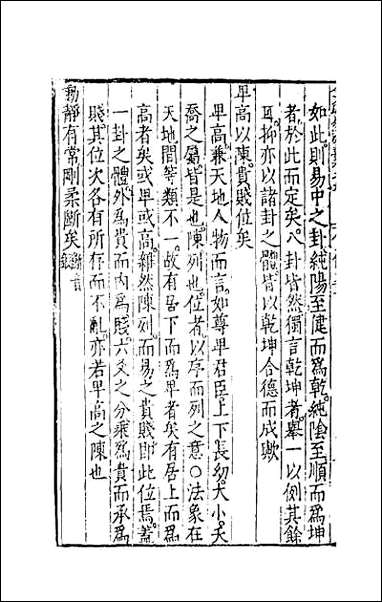 如此則易中之卦純陽至健而爲乾純陰至順而爲坤
者於此而定矣八卦皆然獨言乾坤者舉一以例其餘
耳抑亦以諸卦之體皆以乾坤合德而成歟
卑高以陳貴賤位矣
卑高兼天地人物而言如尊卑君臣上下長幼大小夭
喬之屬皆是也陳列也位者以序而列之意○法象在
天地間等類不一故有居下而爲卑者矣有居上而爲
高者矣或卑或高雜然陳列而易之貴賤即此位焉蓋
一卦之體外爲貴而内爲賤六爻之分乘爲貴而承爲
賤其位次各有所存而不亂亦若卑高之陳也
動靜有常剛柔斷矣